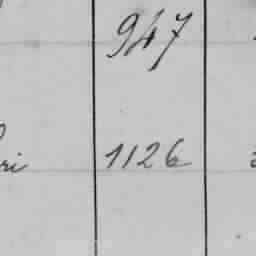 947
ri 1126